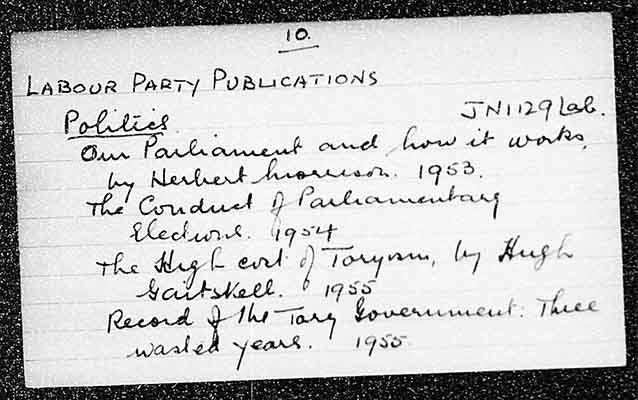 10.
LABOUR PARTY PUBLICATIONS
Politics. JN1129 Lab.
Our Parliament and how it works,
by Herbert Morrison. 1953.
The Conduct of Parliamentary
Elections. 1954
The High cost of Toryism, by Hugh
Gaitskell. 1955
Record of the Tory Government: Three
wasted years. 1955